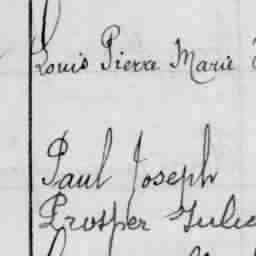 Louis Pierre Marie
Paul Joseph
Prosper Jules